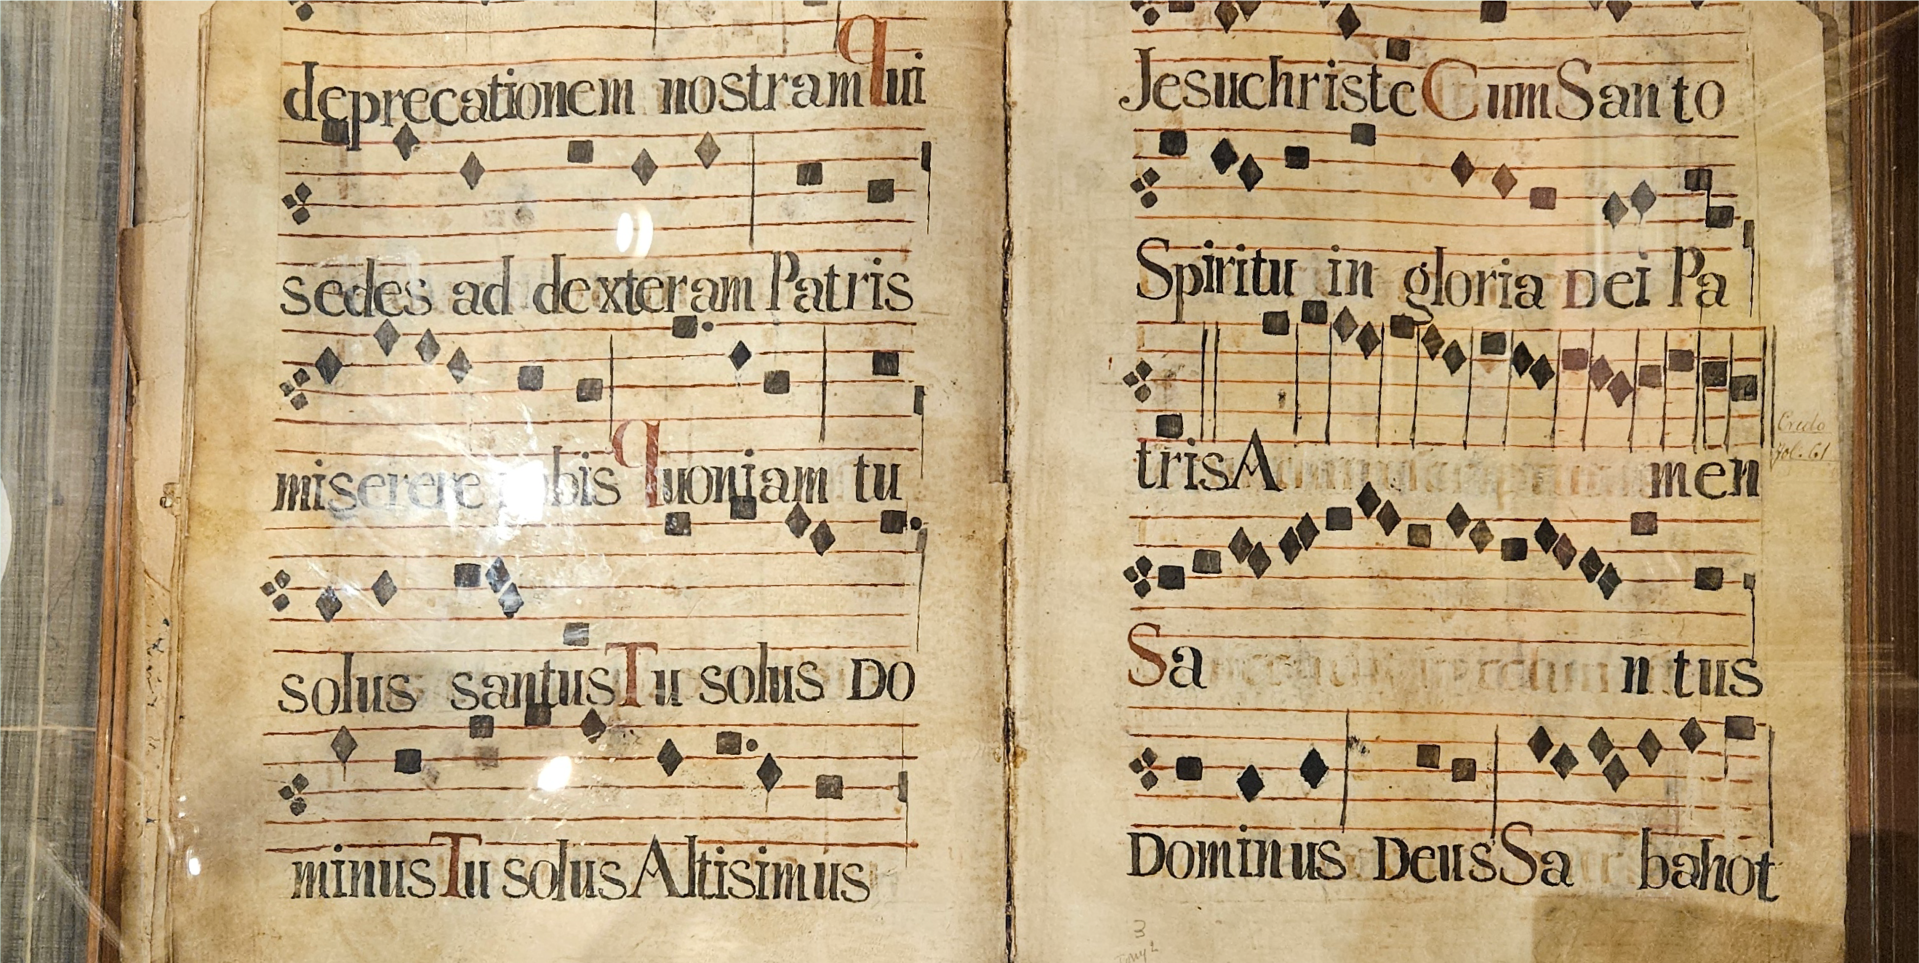 deprecationem nostram qui
sedes ad dexteram Patris
miserere bis quoniam tu
solus santus Tu solus Do
minus Tu solus Altisimus
Jesuchriste Cum Santo
Spiritu in gloria Dei Pa
tris A men
Credo
fol. 61
Sa n tus
Dominus Deus Sa bahot
3